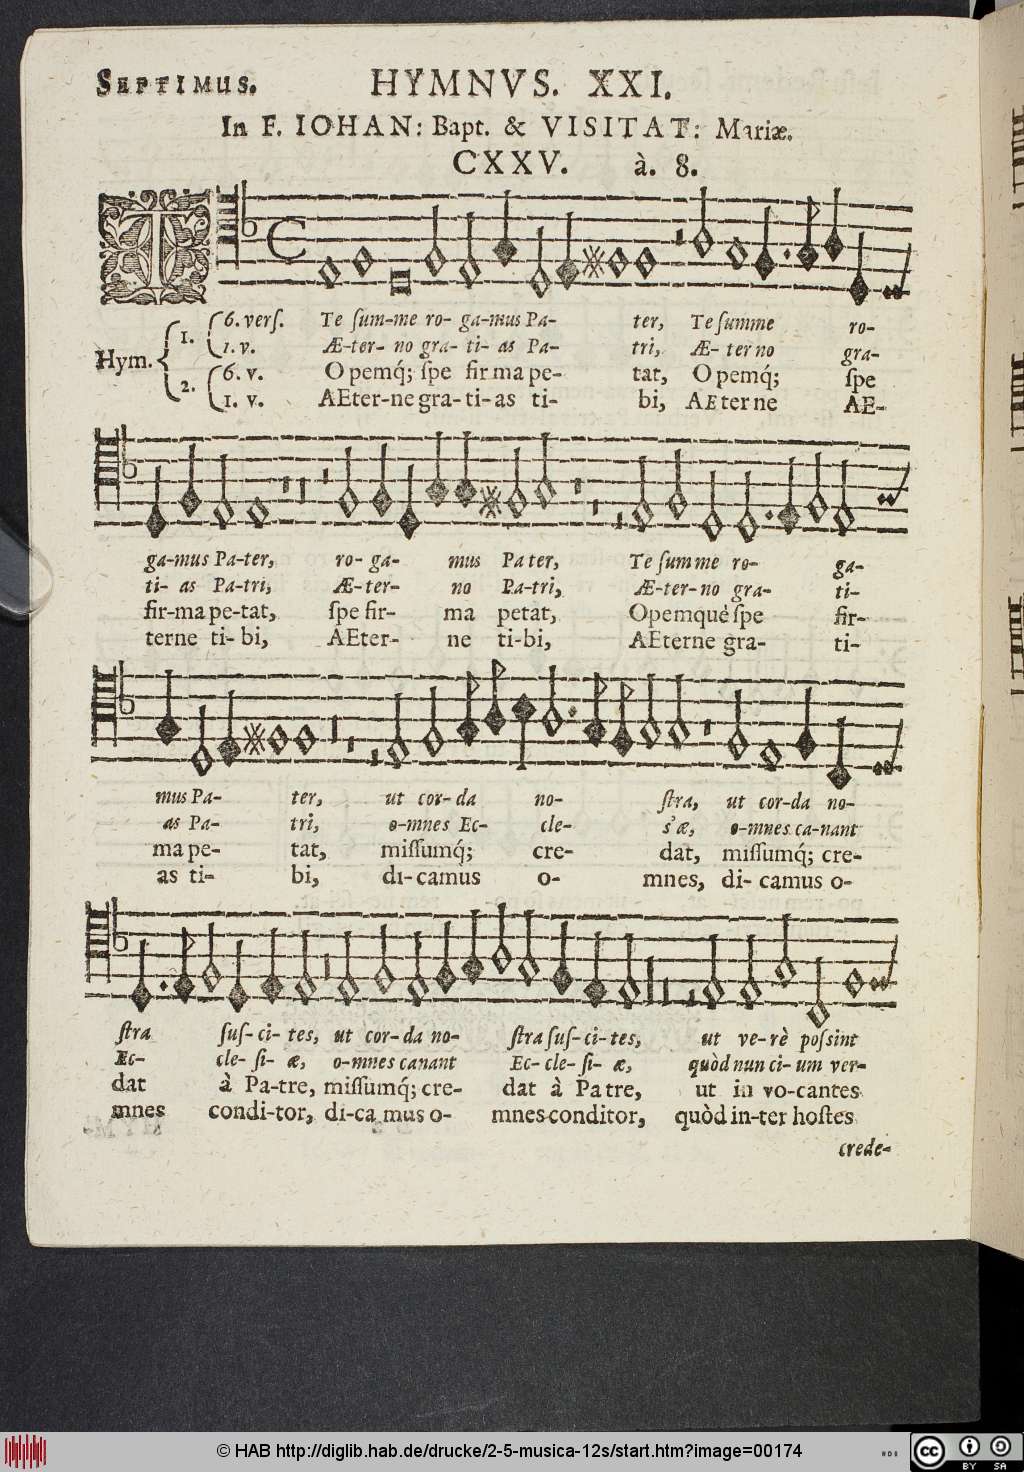 SEPTIMUS. HYMNVS. XXI.
In F. IOHAN: Bapt. & VISITAT: Mariæ.
CXXV. à. 8.
T
Hym. 1. 6. verſ. Te ſum-me ro- ga-mus Pa- ter, Te ſumme ro-
1. v. Æ-ter- no gra- ti- as Pa- tri, Æ- ter no gra-
2. 6. v. O pemq́; ſpe fir ma pe- tat, O pemq́; ſpe
1. v. AEter-ne gra-ti-as ti- bi, AEter ne AE-
ga-mus Pa-ter, ro- ga- mus Pa ter, Te ſum me ro- ga-
ti- as Pa-tri, Æ-ter- no Pa-tri, Æ-ter-no gra- ti-
fir-ma pe-tat, ſpe fir- ma petat, Opemquè ſpe fir-
terne ti-bi, AEter- ne ti-bi, AEterne gra- ti-
mus Pa- ter, ut cor-da no- ſtra, ut cor-da no-
as Pa- tri, o-mnes Ec- cle- s'æ, o-mnes ca-nant
ma pe- tat, miſſumq́; cre- dat, miſſumq́; cre-
as ti- bi, di-camus o- mnes, di- camus o-
ſtra ſuſ- ci- tes, ut cor-da no- ſtra ſuſ-ci-tes, ut ve-rè poſsint
Ec- cle- ſi- æ, o-mnes canant Ec-cle-ſi- æ, quòd nun ci- um ver-
dat à Pa-tre, miſſumq́; cre- dat à Pa tre, ut in vo-cantes
mnes condi-tor, di-ca mus o- mnes conditor, quòd in-ter hoſtes
crede-
© HAB http://diglib.hab.de/drucke/2-5-musica-12s/start.htm?image=00174
cc BY SA